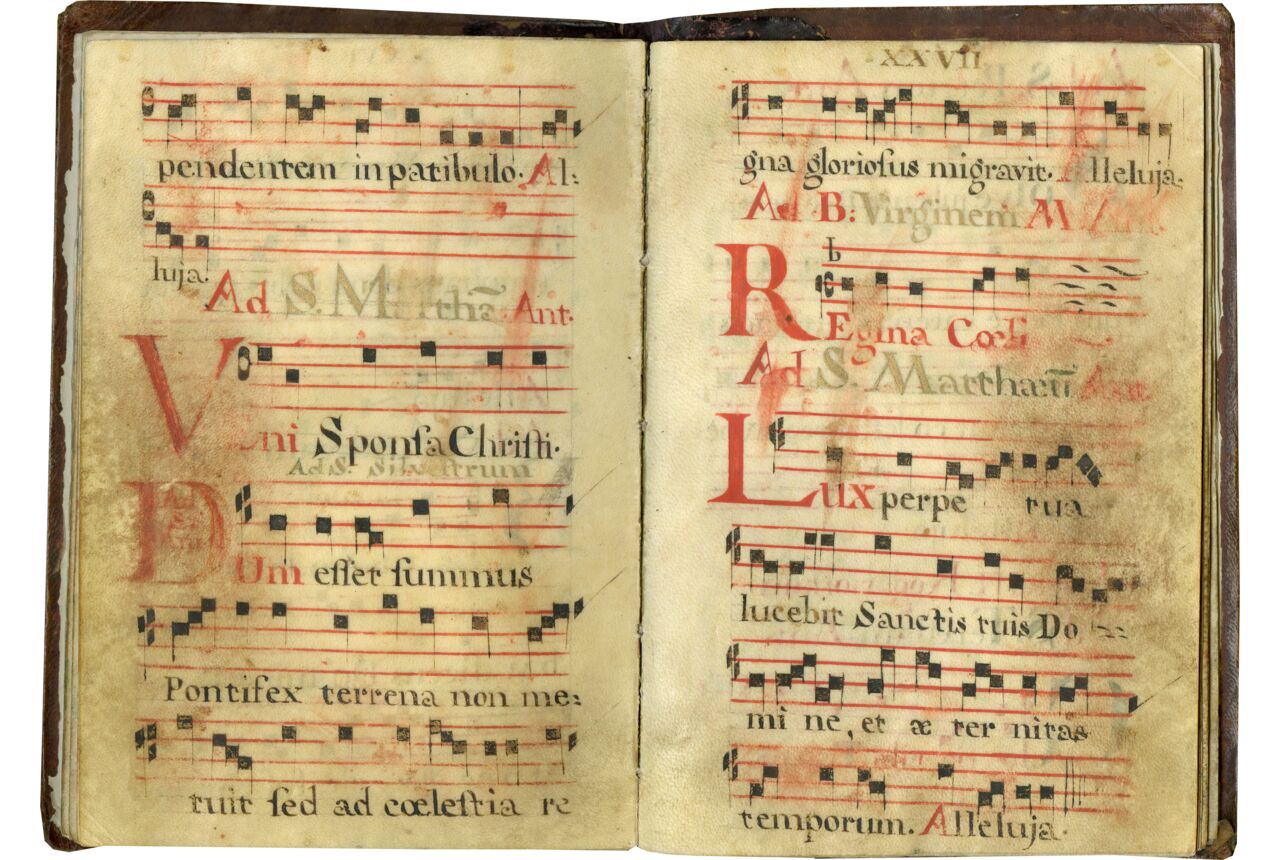 pendentem in patibulo. Al:
luja.
Ad S. Marthā Ant.
Veni Sponſa Chriſti.
Ad S. Silveſtrum
Dum eſſet ſummus
Pontifex terrena non me:
tuit ſed ad cœleſtia re
XXVII
gna glorioſus migravit. Alleluja.
Ad B: Virginem M Ant.
Regina Cœli
Ad S. Matthæū Ant.
Lux perpe tua
lucebit Sanctis tuis Do
mi ne, et æ ter nitas
temporum. Alleluja.